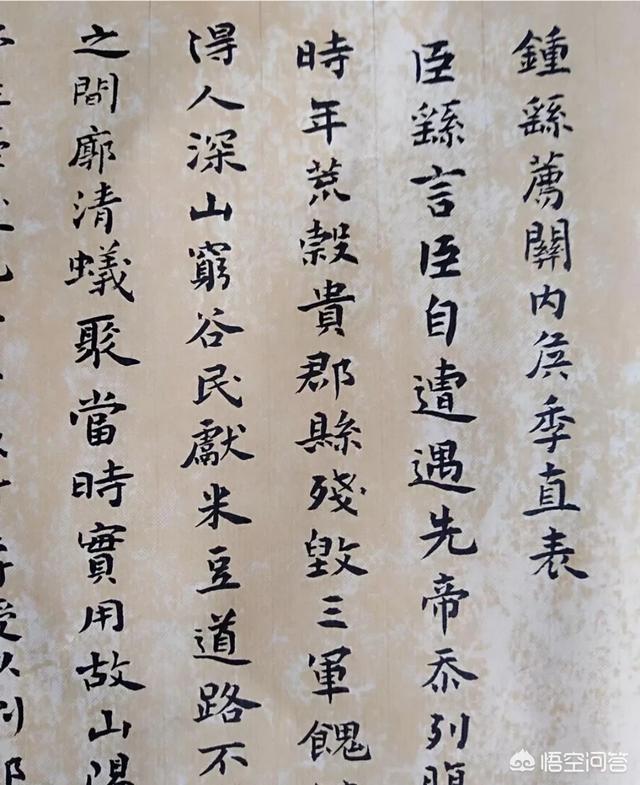 鍾繇薦關内侯季直表
臣繇言臣自遭遇先帝忝列腹
時年荒穀貴郡縣殘毀三軍餽
得人深山窮谷民獻米豆道路不
之間廓清蟻聚當時實用故山陽
悟空问答